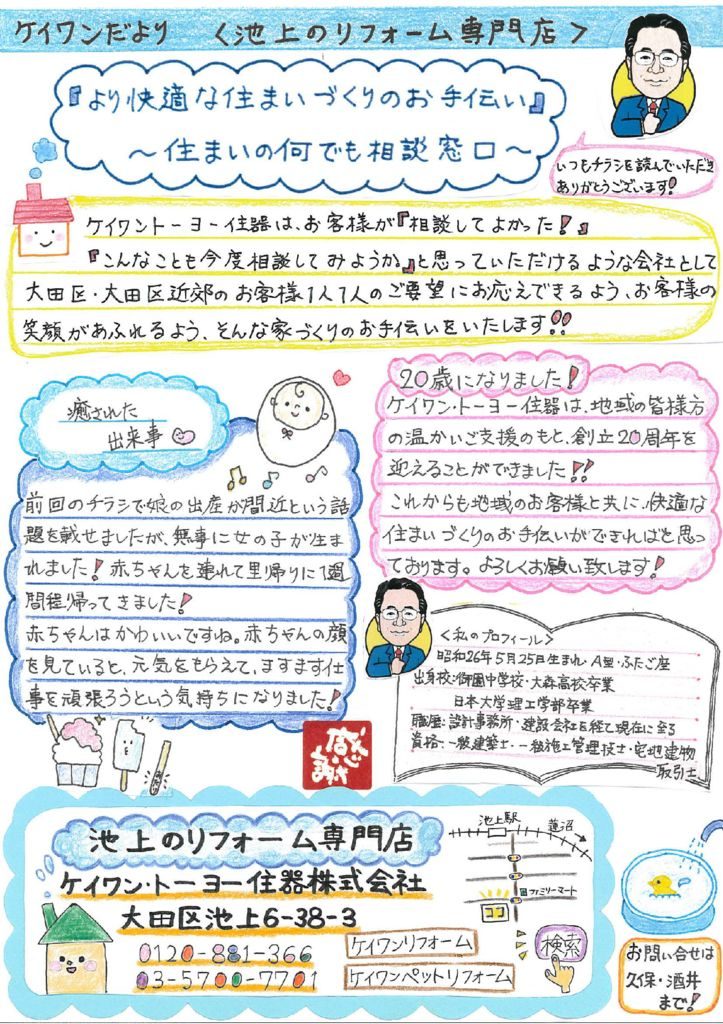 ケイワンだより 〈池上のリフォーム専門店〉
『より快適な住まいづくりのお手伝い』
〜住まいの何でも相談窓口〜
いつもチラシを読んでいただき
ありがとうございます!
ケイワントーヨー住器は、お客様が『相談してよかった!』
『こんなことも今度相談してみようか』と思っていただけるような会社として
大田区・大田区近郊のお客様1人1人のご要望にお応えできるよう、お客様の
笑顔があふれるよう、そんな家づくりのお手伝いをいたします!!
癒された
出来事
前回のチラシで娘の出産が間近という話
題を載せましたが、無事に女の子が生ま
れました!赤ちゃんを連れて里帰りに1週
間程帰ってきました!
赤ちゃんはかわいいですね。赤ちゃんの顔
を見ていると、元気をもらえて、ますます仕
事を頑張ろうという気持ちになりました!
20歳になりました!
ケイワン・トーヨー住器は、地域の皆様方
の温かいご支援のもと、創立20周年を
迎えることができました!!
これからも地域のお客様と共に、快適な
住まいづくりのお手伝いができればと思っ
ております。よろしくお願い致します!
〈私のプロフィール〉
昭和26年5月25日生まれ・A型・ふたご座
出身校:御園中学校・大森高校卒業
日本大学理工学部卒業
職歴:設計事務所・建設会社を経て現在に至る
資格:一級建築士・一級施工管理技士・宅地建物
取引士
感謝
池上のリフォーム専門店
ケイワン・トーヨー住器株式会社
大田区池上6-38-3
0120-881-366
03-5700-7701
ケイワンリフォーム
ケイワンペットリフォーム
検索
池上駅
蓮沼
ファミリーマート
ココ
お問い合せは
久保・酒井
まで!